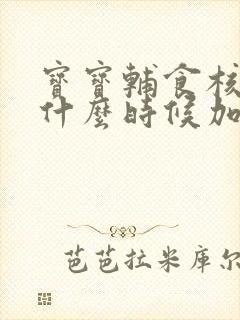 寶寶輔食核
什麼時候加
芭芭拉米库尔